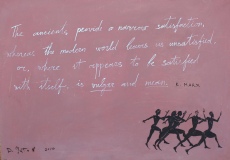 The ancients provide a narrow satisfaction,
whereas the modern world leaves us unsatisfied,
or, where it appears to be satisfied
with itself, is vulgar and mean. K. MARX
2010